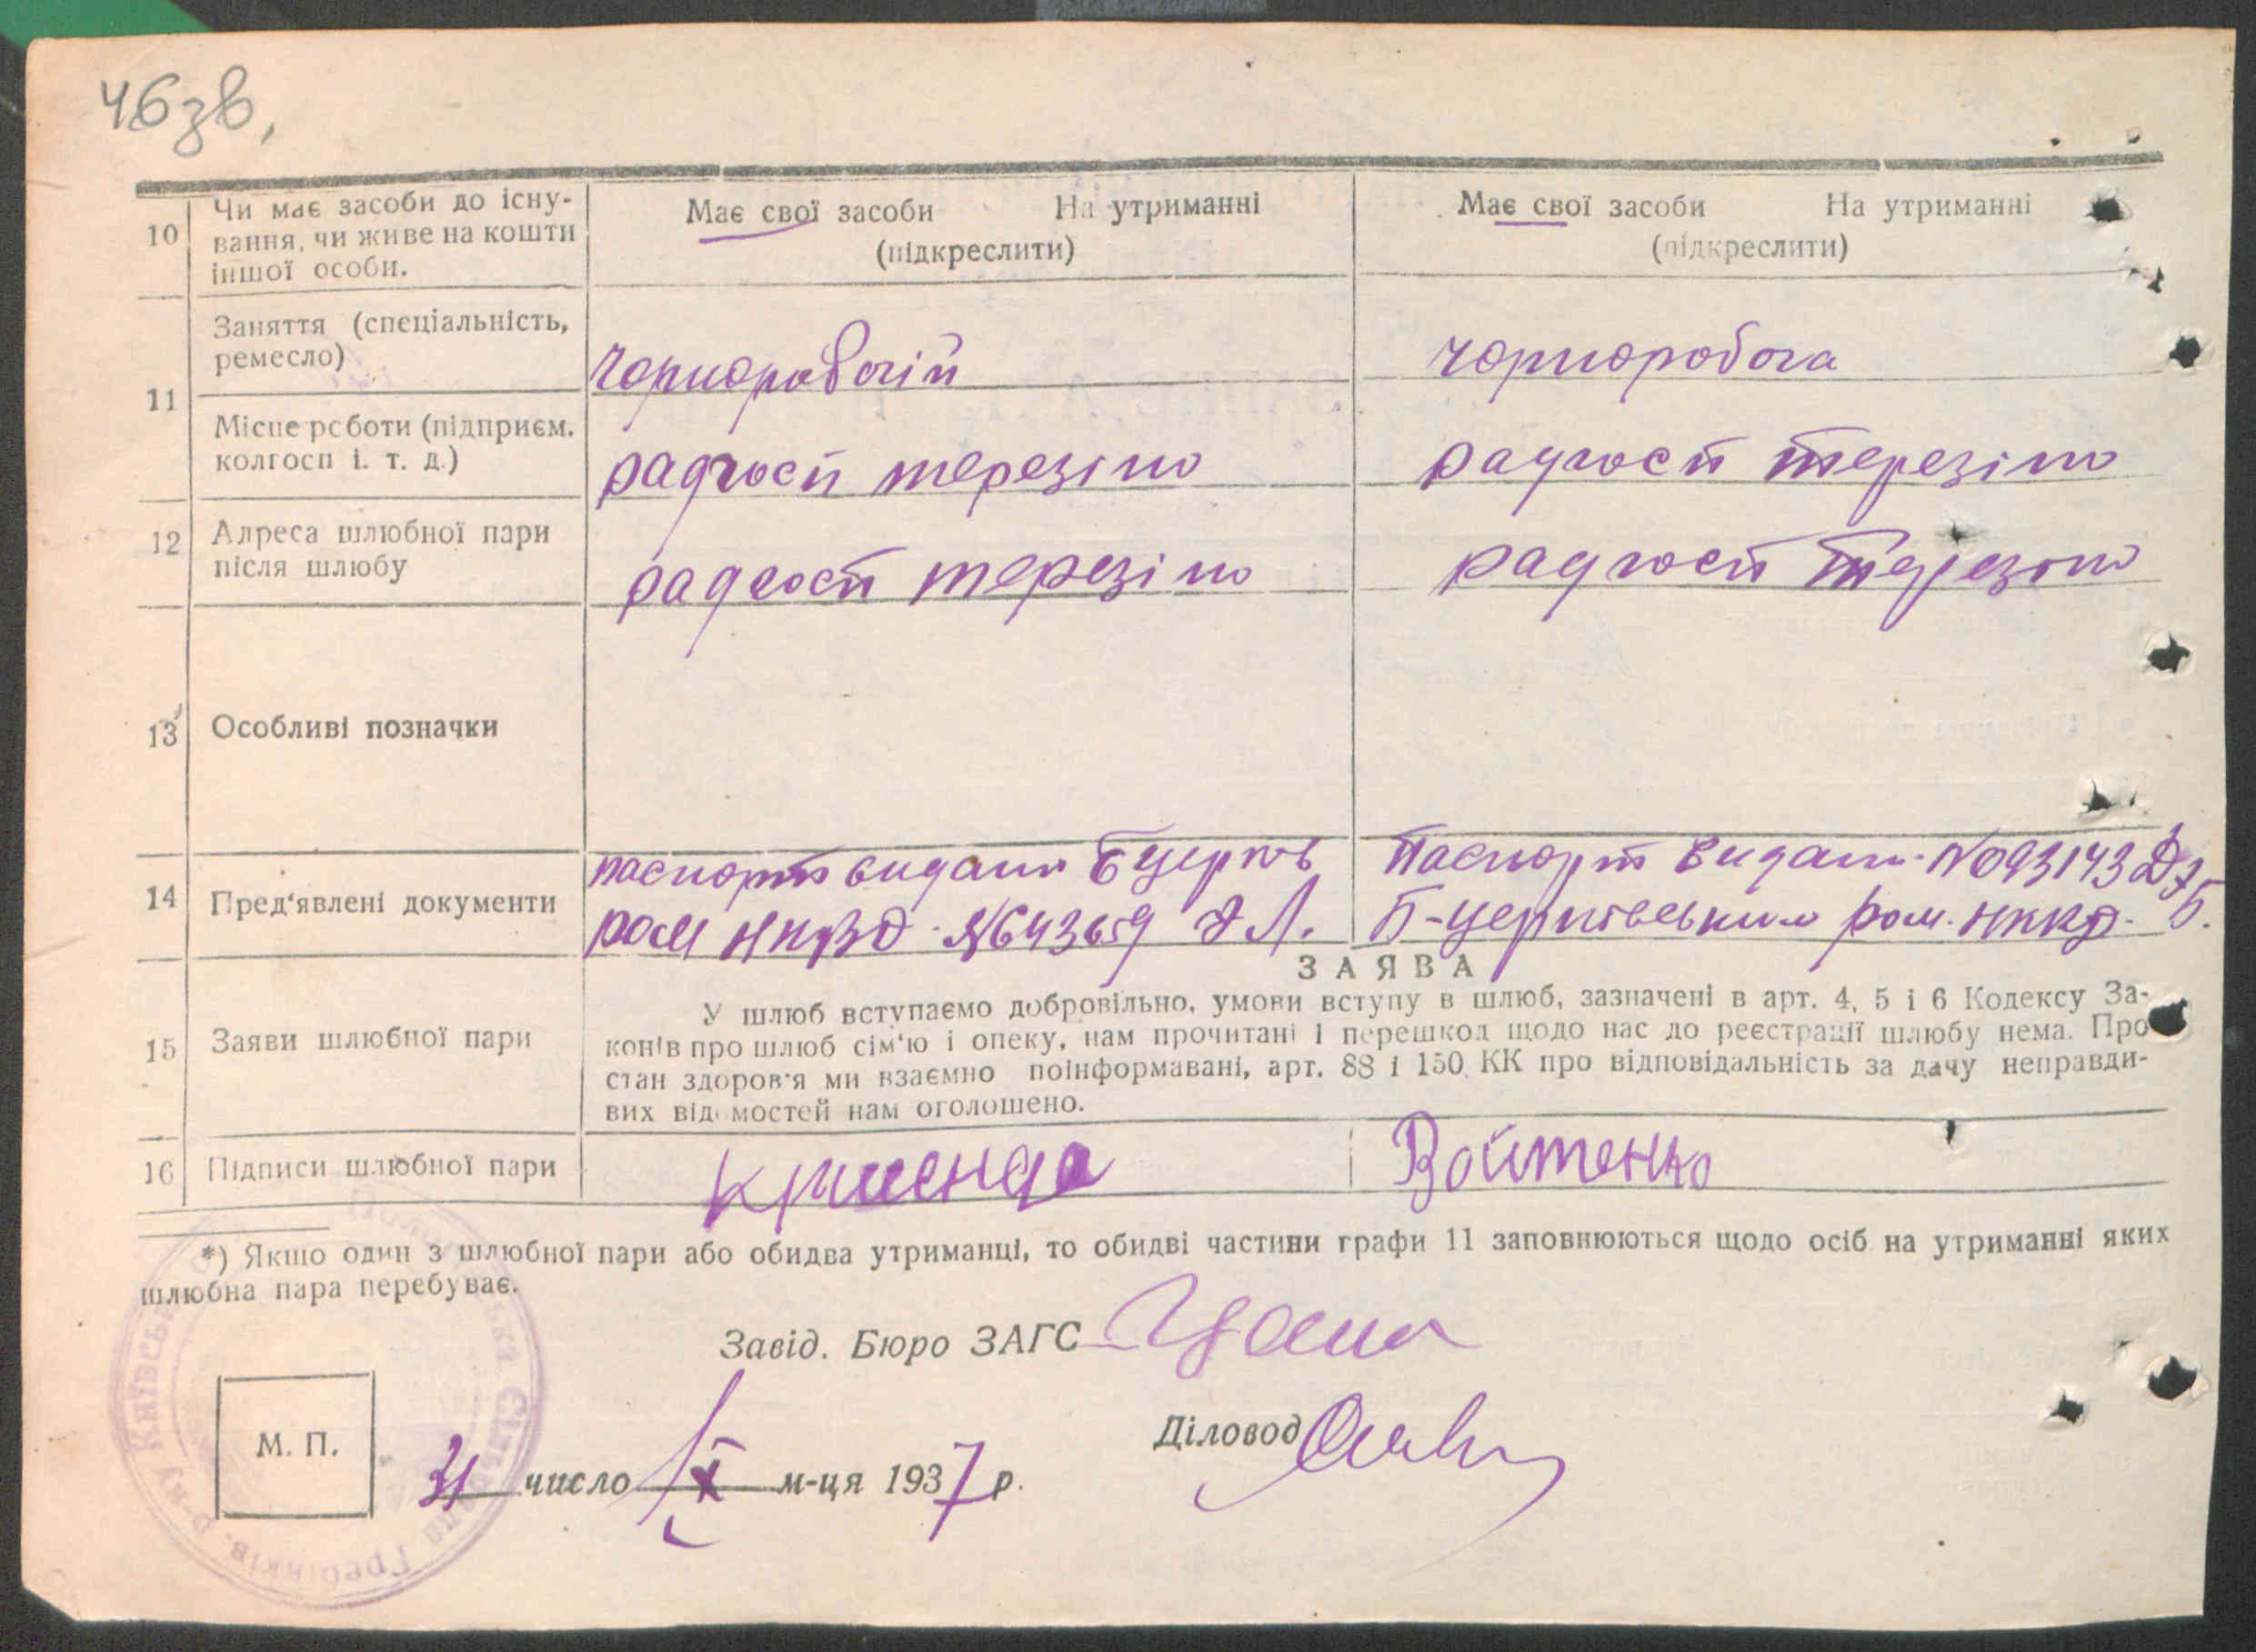 46зв,
10 Чи має засоби до існу-
вання, чи живе на кошти
іншої особи.
Має свої засоби На утриманні
(підкреслити)
Має свої засоби На утриманні
(підкреслити)
11 Заняття (спеціальність,
ремесло)
чорноробочій
чорноробоча
Місце роботи (підприєм.
колгосп і. т. д.)
радгосп терезіно
радгосп терезіно
12 Адреса шлюбної пари
після шлюбу
радгосп терезіно
радгосп терезіно
13 Особливі позначки
14 Пред'явлені документи
паспорт видано Бцерків
ром НКВД №643659
Паспорт видано №093143
Б-церківським ром. НККД.
15 Заяви шлюбної пари
ЗАЯВА
У шлюб вступаємо добровільно, умови вступу в шлюб, зазначені в арт. 4, 5 і 6 Кодексу За-
конів про шлюб сім'ю і опеку, нам прочитані і перешкод щодо нас до реєстрації шлюбу нема. Про
стан здоров'я ми взаємно поінформавані, арт. 88 і 150 КК про відповідальність за дачу неправди-
вих відомостей нам оголошено.
16 Підписи шлюбної пари
Войтенко
*) Якщо один з шлюбної пари або обидва утриманці, то обидві частини графи 11 заповнюються щодо осіб на утриманні яких
шлюбна пара перебуває.
Завід. Бюро ЗАГС
Діловод
М. П.
31 число X м-ця 1937 р.